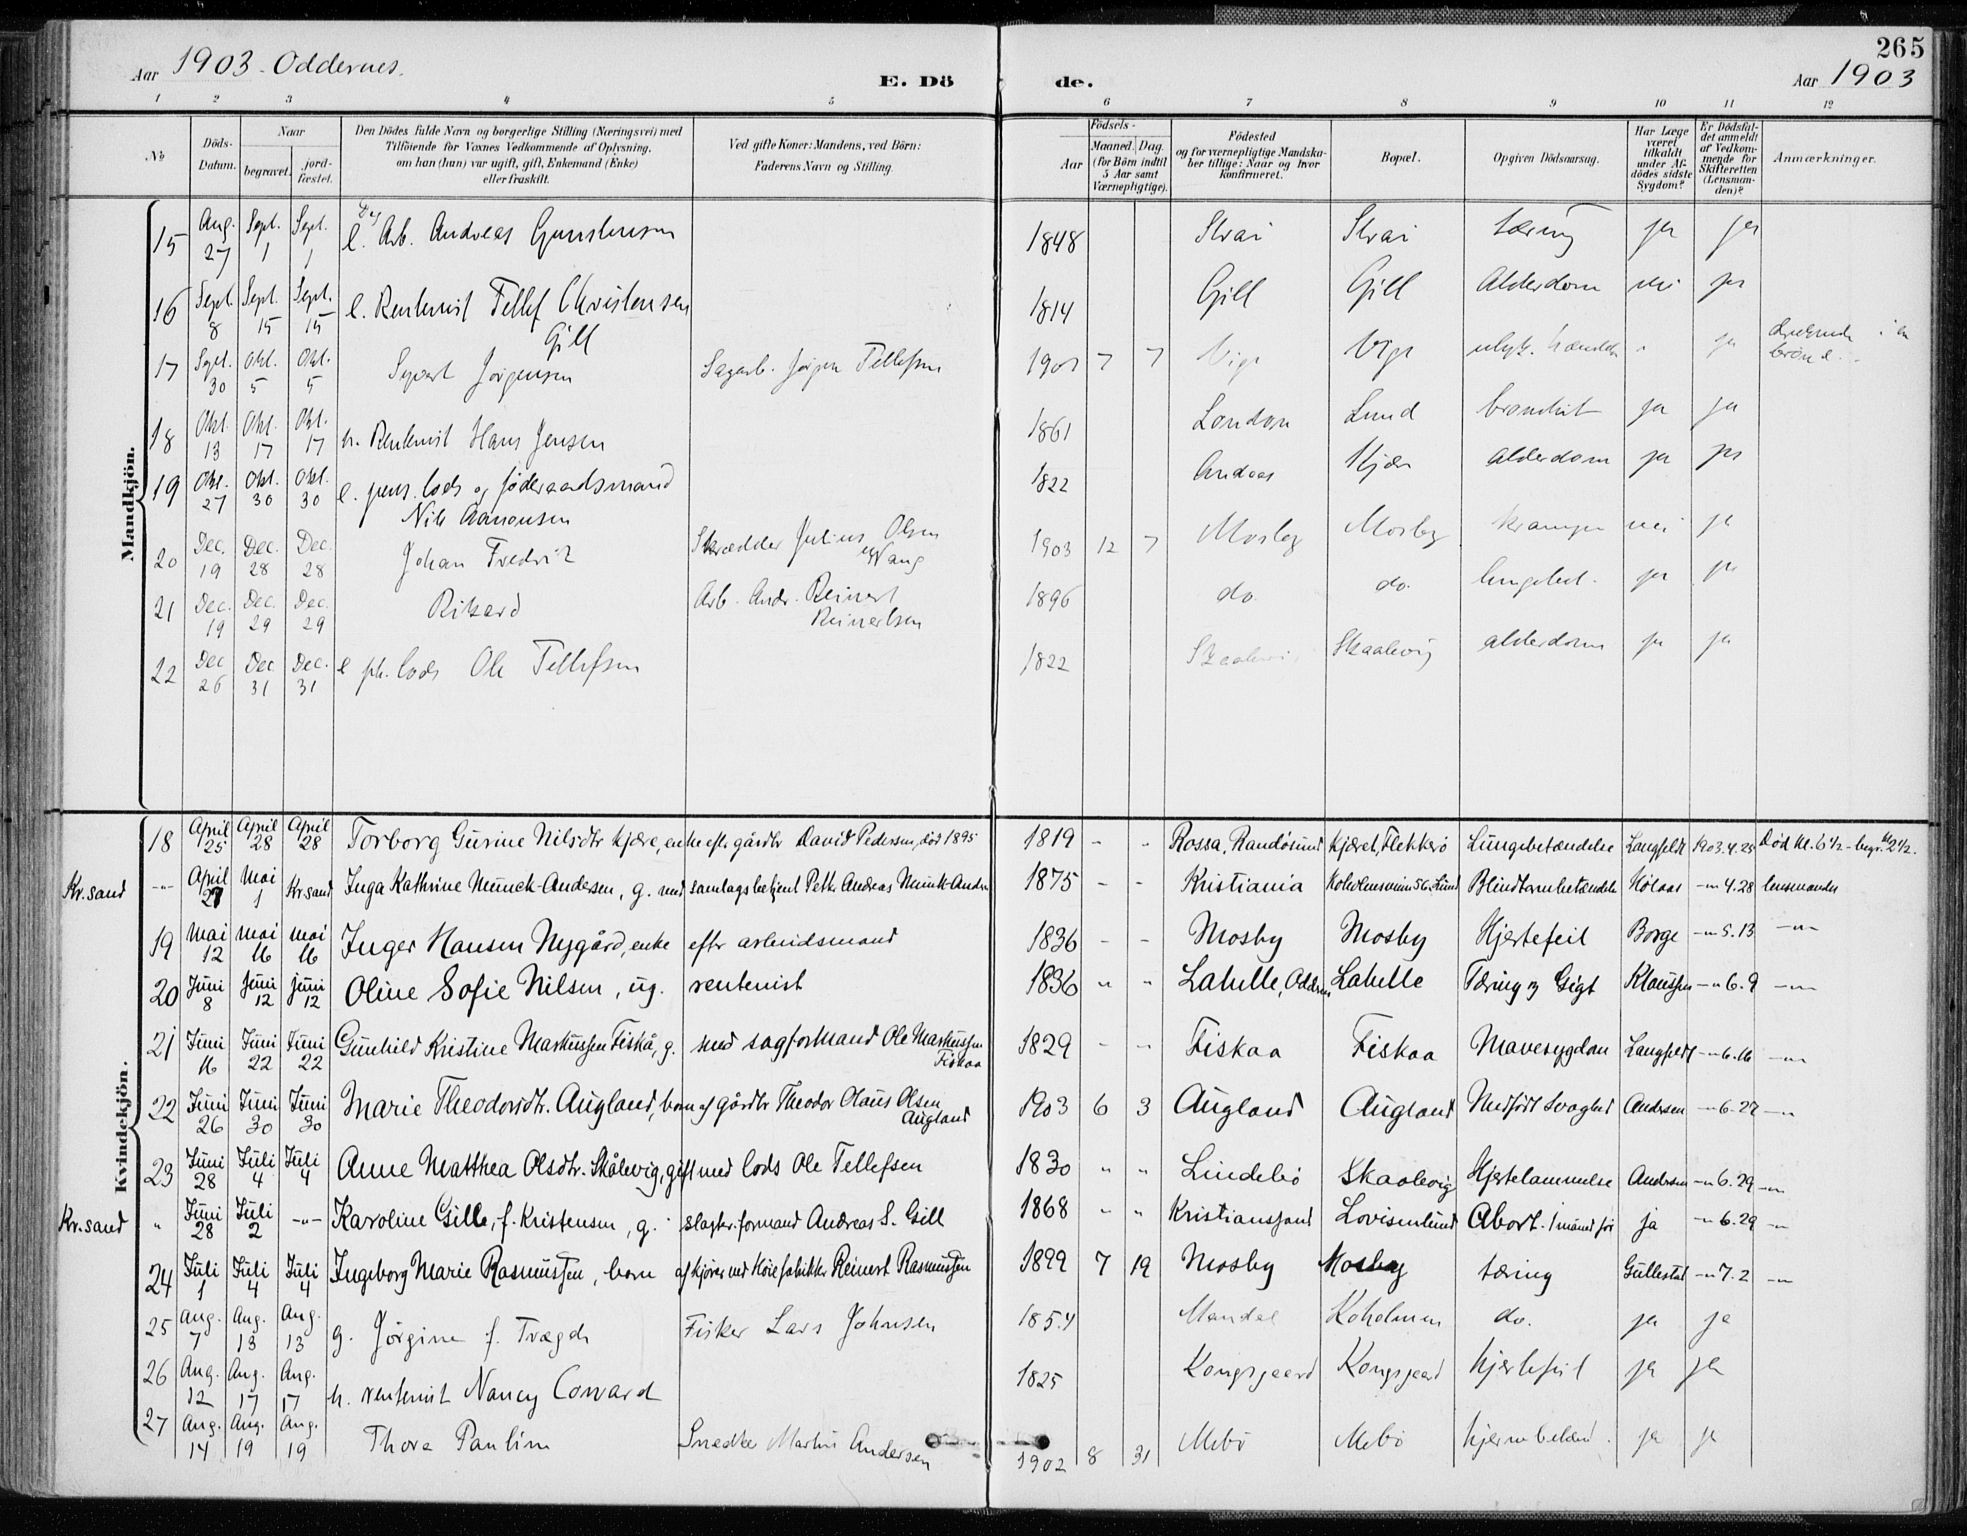 265
Aar 1903 - Oddernes.
E. Dö de.
Aar 1903
1 2 3 4 5 6 7 8 9 10 11 12
No
Döds-Datum.
Naar begravet. jordfæstet.
Den Dödes fulde Navn og borgerlige Stilling (Næringsvei) med Tilföiende for Voxnes Vedkommende af Oplysning, om han (hun) var ugift, gift, Enkemand (Enke) eller fraskilt.
Ved gifte Koner: Mandens, ved Börn: Faderens Navn og Stilling.
Födsels-
Aar Maaned. Dag. (for Börn indtil 5 Aar samt Værnepligtige).
Födested og for værnepligtige Mandskaber tillige: Naar og hvor Konfirmeret.
Bopæl.
Opgiven Dödsaarsag.
Har Læge været tilkaldt under Afdödes sidste Sygdom?
Er Dödsfaldet anmeldt af Vedkommende for Skifteretten (Lensmanden)?
Anmærkninger.
Mandkjön.
15 Aug. 27 Sept. 1 Sept. 1 e. Arb. Andreas Gunstensen 1848 Strai Strai tæring ja ja
16 Sept. 8 Sept. 15 Sept. 15 e. Rentenist Tellef Christensen Gill 1814 Gill Gill Alderdom nei ja
17 Sept. 30 Okt. 5 Okt. 5 Syvert Jörgensen Sagarb. Jörgen Tellefsen 1901 7 7 Vige Vige ulyk. hændelse ja i en brönd.
18 Okt. 13 Okt. 17 Okt. 17 u. Rentenist Hans Jensen 1861 London Lund ja ja
19 Okt. 27 Okt. 30 Okt. 30 e. pens. lods og föderaadsmand Nils Aanonsen 1822 Andaas Kjær Alderdom ja ja
20 Dec. 19 Dec. 28 Dec. 28 Johan Fredrik Skrædder Julius Olsen 1903 12 7 Mosby Mosby krampe nei ja
21 Dec. 19 Dec. 29 Dec. 29 Rikard Arb. Andr. Reinert Reinertsen 1896 do. do. lungebet. ja ja
22 Dec 26 Dec 31 Dec. 31 e lods Ole Tellefsen 1822 Skaalevig Skaalevig alderdom ja ja
Kvindekjön.
18 April 25 April 28 April 28 Torborg Gurine Nilsdtr Kjære, enke efter gårdbr David Pedersen, död 1895 1819 - - Rossa, Randösund Kjæret, Flekkerö Lungebetændelse Langfeldt 1903.4.25 Död kl. 6 1/2 - begr. kl 2 1/2.
Kr.sand -"- April 27 Mai 1 Kr.sand Inga Kathrine Munck-Andersen, g. med samlagsbetjent Peter Andreas Munck-Andersen 1875 - - Kristiania Lund Blindtarmbetændelse Hölaas -"-4.28 lensmanden
19 Mai 12 Mai 16 Mai 16 Inger Hansen Nygård, enke efter arbeidsmand 1836 - - Mosby Mosby Hjertefeil Borge -"-5.13 -"-
20 Juni 8 Juni 12 Juni 12 Oline Sofie Nilsen, ug. rentenist 1836 " " Lahelle, Oddernes Lahelle Tæring og Gigt Klaussen -"-6.9 -"-
21 Juni 16 Juni 22 Juni 22 Gunhild Kristine Markussen Fiskå, g. med sagformand Ole Markussen Fiskaa 1829 - - Fiskaa Fiskaa Mavesygdom Langfeldt -"-6.16 -"-
22 Juni 26 Juni 30 Juni 30 Marie Theodorsdtr. Augland, barn af gårdbr Theodor Olaus Olsen Augland 1903 6 3 Augland Augland Medfödt svaghed Andersen -"-6.27 -"-
23 Juni 28 Juli 4 Juli 4 Anne Matthea Olsdtr. Skålevig, gift med lods Ole Tellefsen 1830 " " Lindebö Skaalevig Hjertelammelse Andersen -"-6.29 -"-
Kr.sand " Juni 28 Juli 2 -"- Karoline Gille, f. Kristensen, g. slagter.formand Andreas S. Gill 1868 " " Kristianssand Lovisenlund Abort. 1 måned för ja -"-6.29 -"-
24 Juli 1 Juli 4 Juli 4 Ingeborg Marie Rasmussen, barn af kjörer ved Höiefabrikker Reinert Rasmussen 1899 7 19 Mosby Mosby tæring Gullestad -"-7.2 -"-
25 Aug. 7 Aug. 13 Aug. 13 g. Jörgine f. Trægde Fisker Lars Johnsen 1854 Mandal Koholmen do. ja ja
26 Aug. 12 Aug. 17 Aug. 17 u. rentenist Nancy Conrard 1825 Kongsgaard Kongsgaard hjertefeil ja ja
27 Aug. 14 Aug. 19 Aug. 19 Thora Pauline Snedker Martin Andersen 1902 8 31 Mebö Mebö hjernebetænd. ja ja